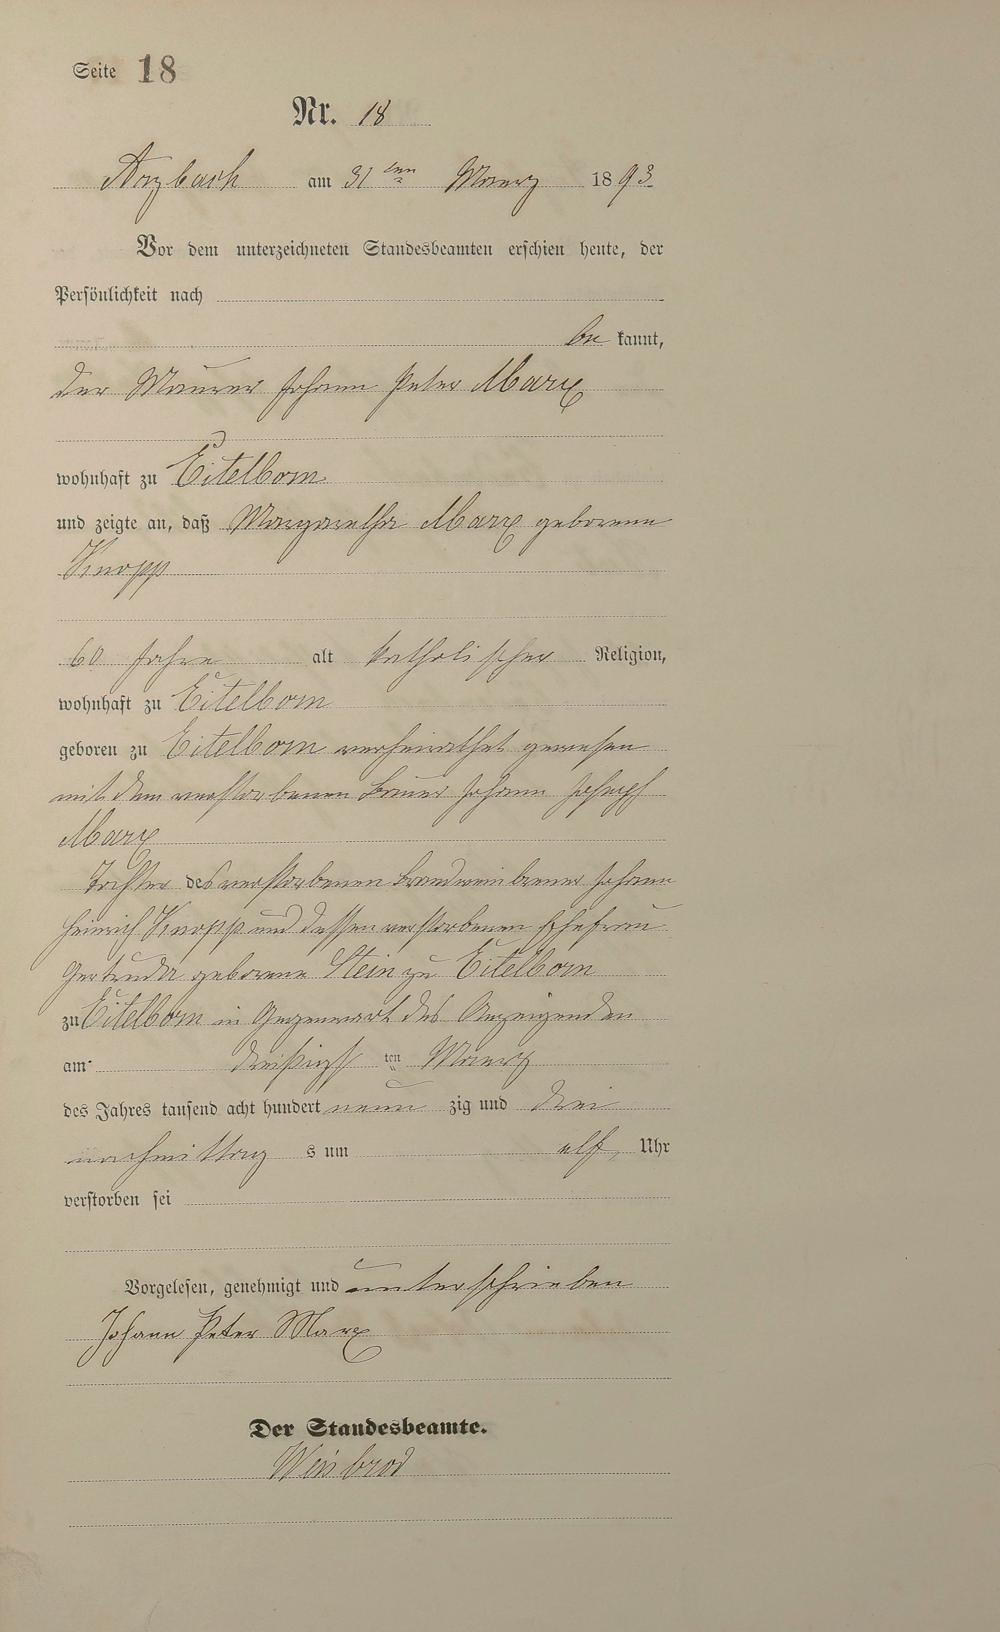 Seite 18
Nr. 18
Arzbach am 31 ten Maerz 1893
Vor dem unterzeichneten Standesbeamten erschien heute, der
Persönlichkeit nach
be kannt,
der Maurer Johann Peter Marx
wohnhaft zu Eitelborn
und zeigte an, daß Margaretha Marx geborene
Knopp
60 Jahre alt katholischer Religion,
wohnhaft zu Eitelborn
geboren zu Eitelborn verheirathet gewesen
mit dem verstorbenen Bauer Johann Joseph
Marx
Tochter des verstorbenen Brandweinbrener Johann
Heinrich Knopp und dessen verstorbenen Ehefrau
Gertruda geborene Stein zu Eitelborn
zu Eitelborn in Gegenwart des Anzeigenden
am dreißigs ten Maerz
des Jahres tausend acht hundert neun zig und drei
nachmittag s um elf Uhr
verstorben sei
Vorgelesen, genehmigt und unterschrieben
Johann Peter Marx
Der Standesbeamte.
Weisbrod